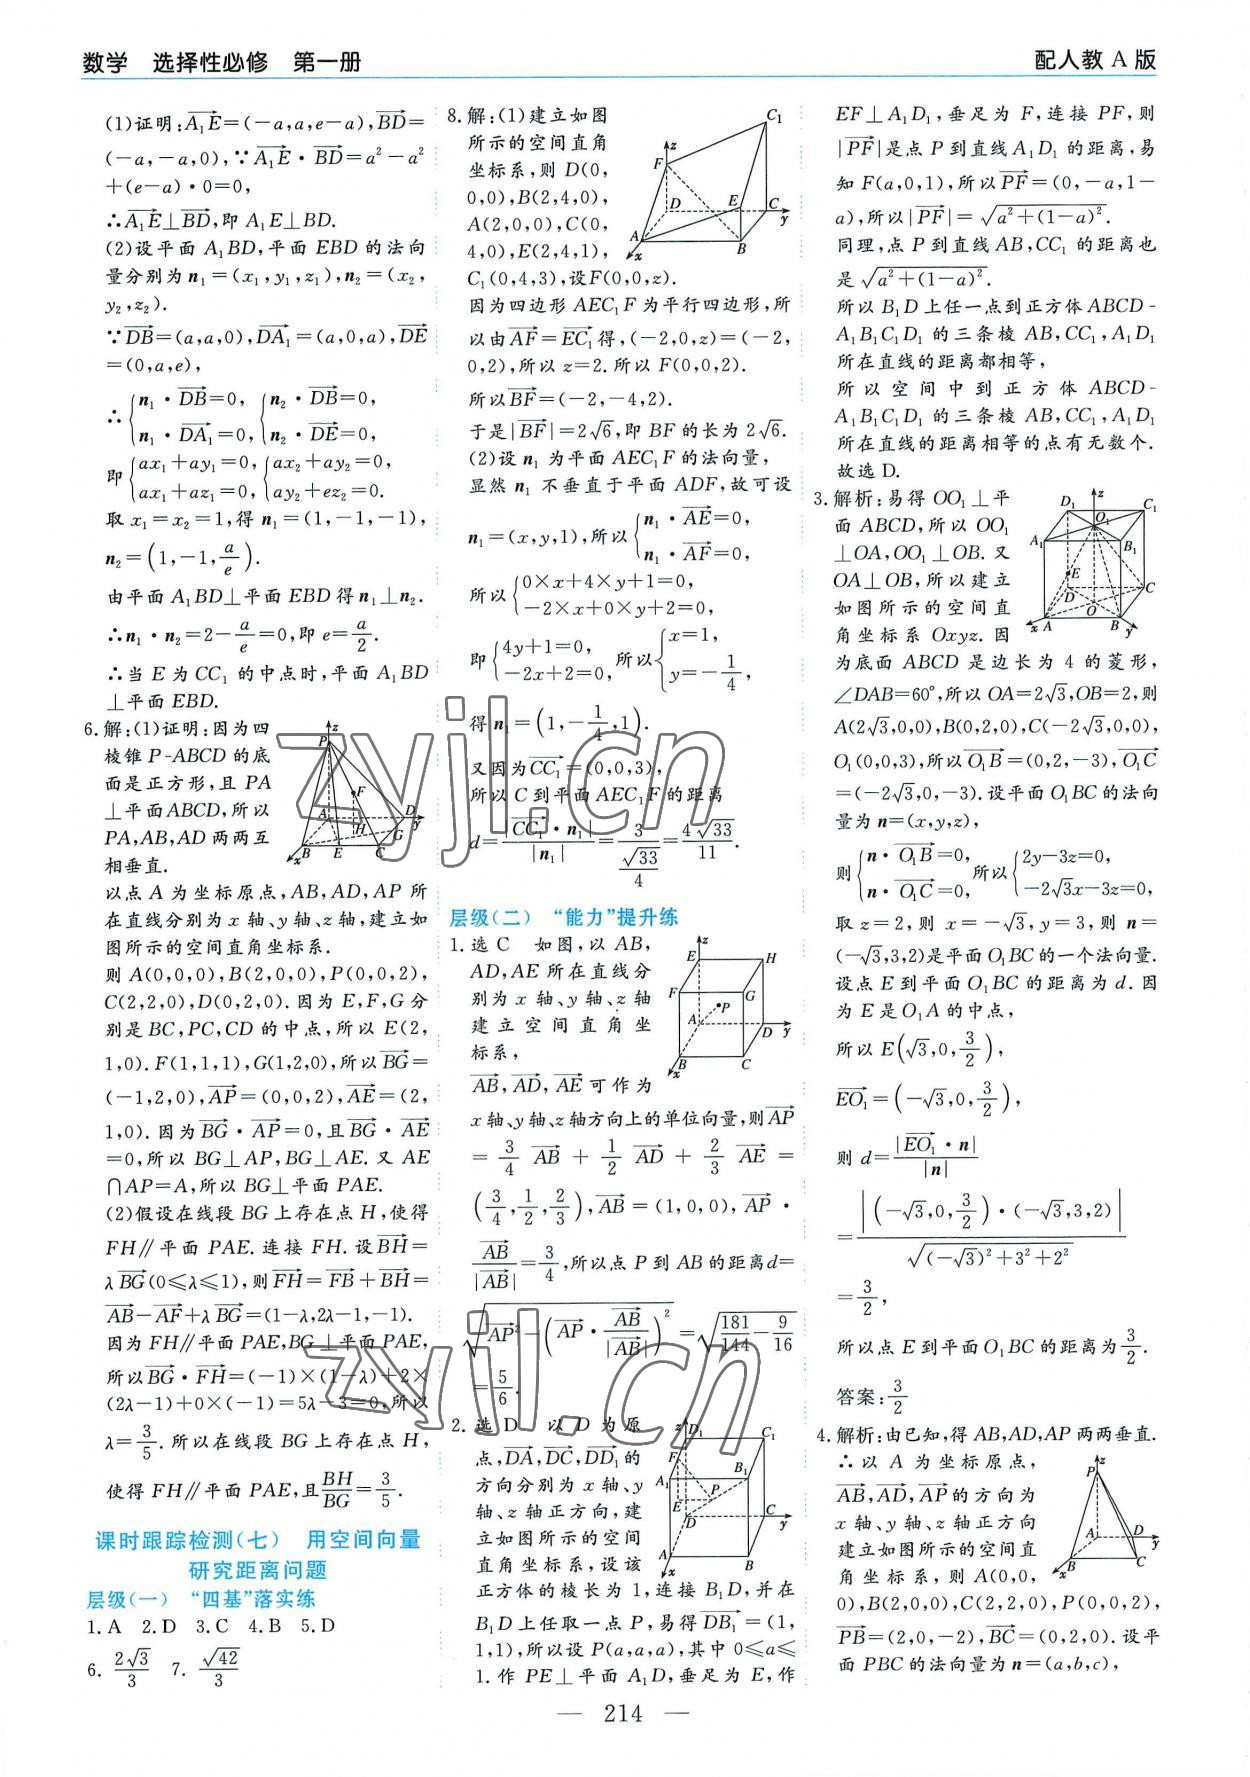 数学 选择性必修 第一册
配人教 A 版
(1)证明:A₁E=(-a,a,e-a),BD=
(-a,-a,0),∵A₁E·BD=a²-a²
+(e-a)·0=0,
∴A₁E⊥BD,即 A₁E⊥BD.
(2)设平面 A₁BD,平面 EBD 的法向
量分别为 n₁=(x₁,y₁,z₁),n₂=(x₂,
y₂,z₂).
∵DB=(a,a,0),DA₁=(a,0,a),DE
=(0,a,e),
∴{n₁·DB=0, {n₂·DB=0,
n₁·DA₁=0, n₂·DE=0,
即{ax₁+ay₁=0, {ax₂+ay₂=0,
ax₁+az₁=0, ay₂+ez₂=0.
取 x₁=x₂=1,得 n₁=(1,-1,-1),
n₂=(1,-1,a/e).
由平面 A₁BD⊥平面 EBD 得 n₁⊥n₂.
∴n₁·n₂=2-a/e=0,即 e=a/2.
∴当 E 为 CC₁ 的中点时,平面 A₁BD
⊥平面 EBD.
6.解:(1)证明:因为四
棱锥 P-ABCD 的底
面是正方形,且 PA
⊥平面ABCD,所以
PA,AB,AD 两两互
相垂直.
以点 A 为坐标原点,AB,AD,AP 所
在直线分别为 x 轴、y 轴、z 轴,建立如
图所示的空间直角坐标系.
则 A(0,0,0),B(2,0,0),P(0,0,2),
C(2,2,0),D(0,2,0).因为 E,F,G 分
别是 BC,PC,CD 的中点,所以 E(2,
1,0).F(1,1,1),G(1,2,0),所以 BG=
(-1,2,0),AP=(0,0,2),AE=(2,
1,0).因为 BG·AP=0,且 BG·AE
=0,所以 BG⊥AP,BG⊥AE.又 AE
∩AP=A,所以 BG⊥平面 PAE.
(2)假设在线段 BG 上存在点 H,使得
FH∥平面 PAE.连接 FH.设 BH=
λBG(0≤λ≤1),则 FH=FB+BH=
AB-AF+λBG=(1-λ,2λ-1,-1).
因为 FH∥平面 PAE,BG⊥平面 PAE,
所以 BG·FH=(-1)×(1-λ)+2×
(2λ-1)+0×(-1)=5λ-3=0,所以
λ=3/5.所以在线段 BG 上存在点 H,
使得 FH∥平面 PAE,且BH/BG=3/5.
课时跟踪检测(七) 用空间向量
研究距离问题
层级(一) “四基”落实练
1.A 2.D 3.C 4.B 5.D
6. 2√3/3 7. √42/3
8.解:(1)建立如图
所示的空间直角
坐标系,则 D(0,
0,0),B(2,4,0),
A(2,0,0),C(0,
4,0),E(2,4,1),
C₁(0,4,3),设F(0,0,z).
因为四边形 AEC₁F 为平行四边形,所
以由 AF=EC₁得,(-2,0,z)=(-2,
0,2),所以 z=2.所以 F(0,0,2).
所以 BF=(-2,-4,2).
于是|BF|=2√6,即 BF 的长为 2√6.
(2)设 n₁ 为平面 AEC₁F 的法向量,
显然 n₁ 不垂直于平面 ADF,故可设
n₁=(x,y,1),所以{n₁·AE=0,
n₁·AF=0,
所以{0×x+4×y+1=0,
-2×x+0×y+2=0,
即{4y+1=0, 所以{x=1,
-2x+2=0, y=-1/4,
得 n₁=(1,-1/4,1).
又因为CC₁=(0,0,3),
所以 C 到平面 AEC₁F 的距离
d=|CC₁·n₁|/|n₁|=3/(√33/4)=4√33/11.
层级(二) “能力”提升练
1.选 C 如图,以 AB,
AD,AE 所在直线分
别为 x 轴、y 轴、z 轴
建立空间直角坐
标系,
AB,AD,AE 可作为
x 轴、y 轴、z 轴方向上的单位向量,则AP
=3/4 AB + 1/2 AD + 2/3 AE =
(3/4,1/2,2/3),AB=(1,0,0),AP·
AB/|AB|=3/4,所以点 P 到 AB 的距离d=
√(AP²-(AP·AB/|AB|)²)=√(181/144-9/16)
=5/6.
2.选 D 以 D 为原
点,DA,DC,DD₁的
方向分别为 x 轴、y
轴、z 轴正方向,建
立如图所示的空间
直角坐标系,设该
正方体的棱长为 1,连接 B₁D,并在
B₁D 上任取一点 P,易得DB₁=(1,
1,1),所以设 P(a,a,a),其中 0≤a≤
1.作 PE⊥平面 A₁D,垂足为 E,作
EF⊥A₁D₁,垂足为 F,连接 PF,则
|PF|是点 P 到直线A₁D₁ 的距离,易
知 F(a,0,1),所以PF=(0,-a,1-
a),所以|PF|=√(a²+(1-a)²).
同理,点 P 到直线 AB,CC₁ 的距离也
是√(a²+(1-a)²).
所以 B₁D 上任一点到正方体 ABCD-
A₁B₁C₁D₁ 的三条棱 AB,CC₁,A₁D₁
所在直线的距离都相等,
所以空间中到正方体 ABCD-
A₁B₁C₁D₁ 的三条棱 AB,CC₁,A₁D₁
所在直线的距离相等的点有无数个.
故选 D.
3.解析:易得 OO₁⊥平
面 ABCD,所以 OO₁
⊥OA,OO₁⊥OB.又
OA⊥OB,所以建立
如图所示的空间直
角坐标系 Oxyz.因
为底面 ABCD 是边长为 4 的菱形,
∠DAB=60°,所以 OA=2√3,OB=2,则
A(2√3,0,0),B(0,2,0),C(-2√3,0,0),
O₁(0,0,3),所以O₁B=(0,2,-3),O₁C
=(-2√3,0,-3).设平面 O₁BC 的法向
量为 n=(x,y,z),
则{n·O₁B=0, 所以{2y-3z=0,
n·O₁C=0, -2√3x-3z=0,
取 z=2,则 x=-√3,y=3,则 n=
(-√3,3,2)是平面 O₁BC 的一个法向量.
设点 E 到平面 O₁BC 的距离为 d.因
为 E 是 O₁A 的中点,
所以 E(√3,0,3/2),
EO₁=(-√3,0,3/2),
则 d=|EO₁·n|/|n|
=|(-√3,0,3/2)·(-√3,3,2)|/√((-√3)²+3²+2²)
=3/2,
所以点 E 到平面 O₁BC 的距离为3/2.
答案:3/2
4.解析:由已知,得 AB,AD,AP 两两垂直.
∴以 A 为坐标原点,
AB,AD,AP的方向为
x轴、y轴、z轴正方向
建立如图所示的空间直
角坐标系,则 A(0,0,
0),B(2,0,0),C(2,2,0),P(0,0,2),
PB=(2,0,-2),BC=(0,2,0).设平
面 PBC 的法向量为 n=(a,b,c),
— 214 —
zyjl.cn
zyjl.cn